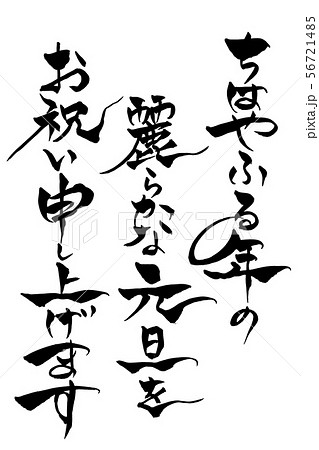 ちはやふる年の
麗らかな元旦を
お祝い申し上げます
PIXTA
pixta.jp - 56721485